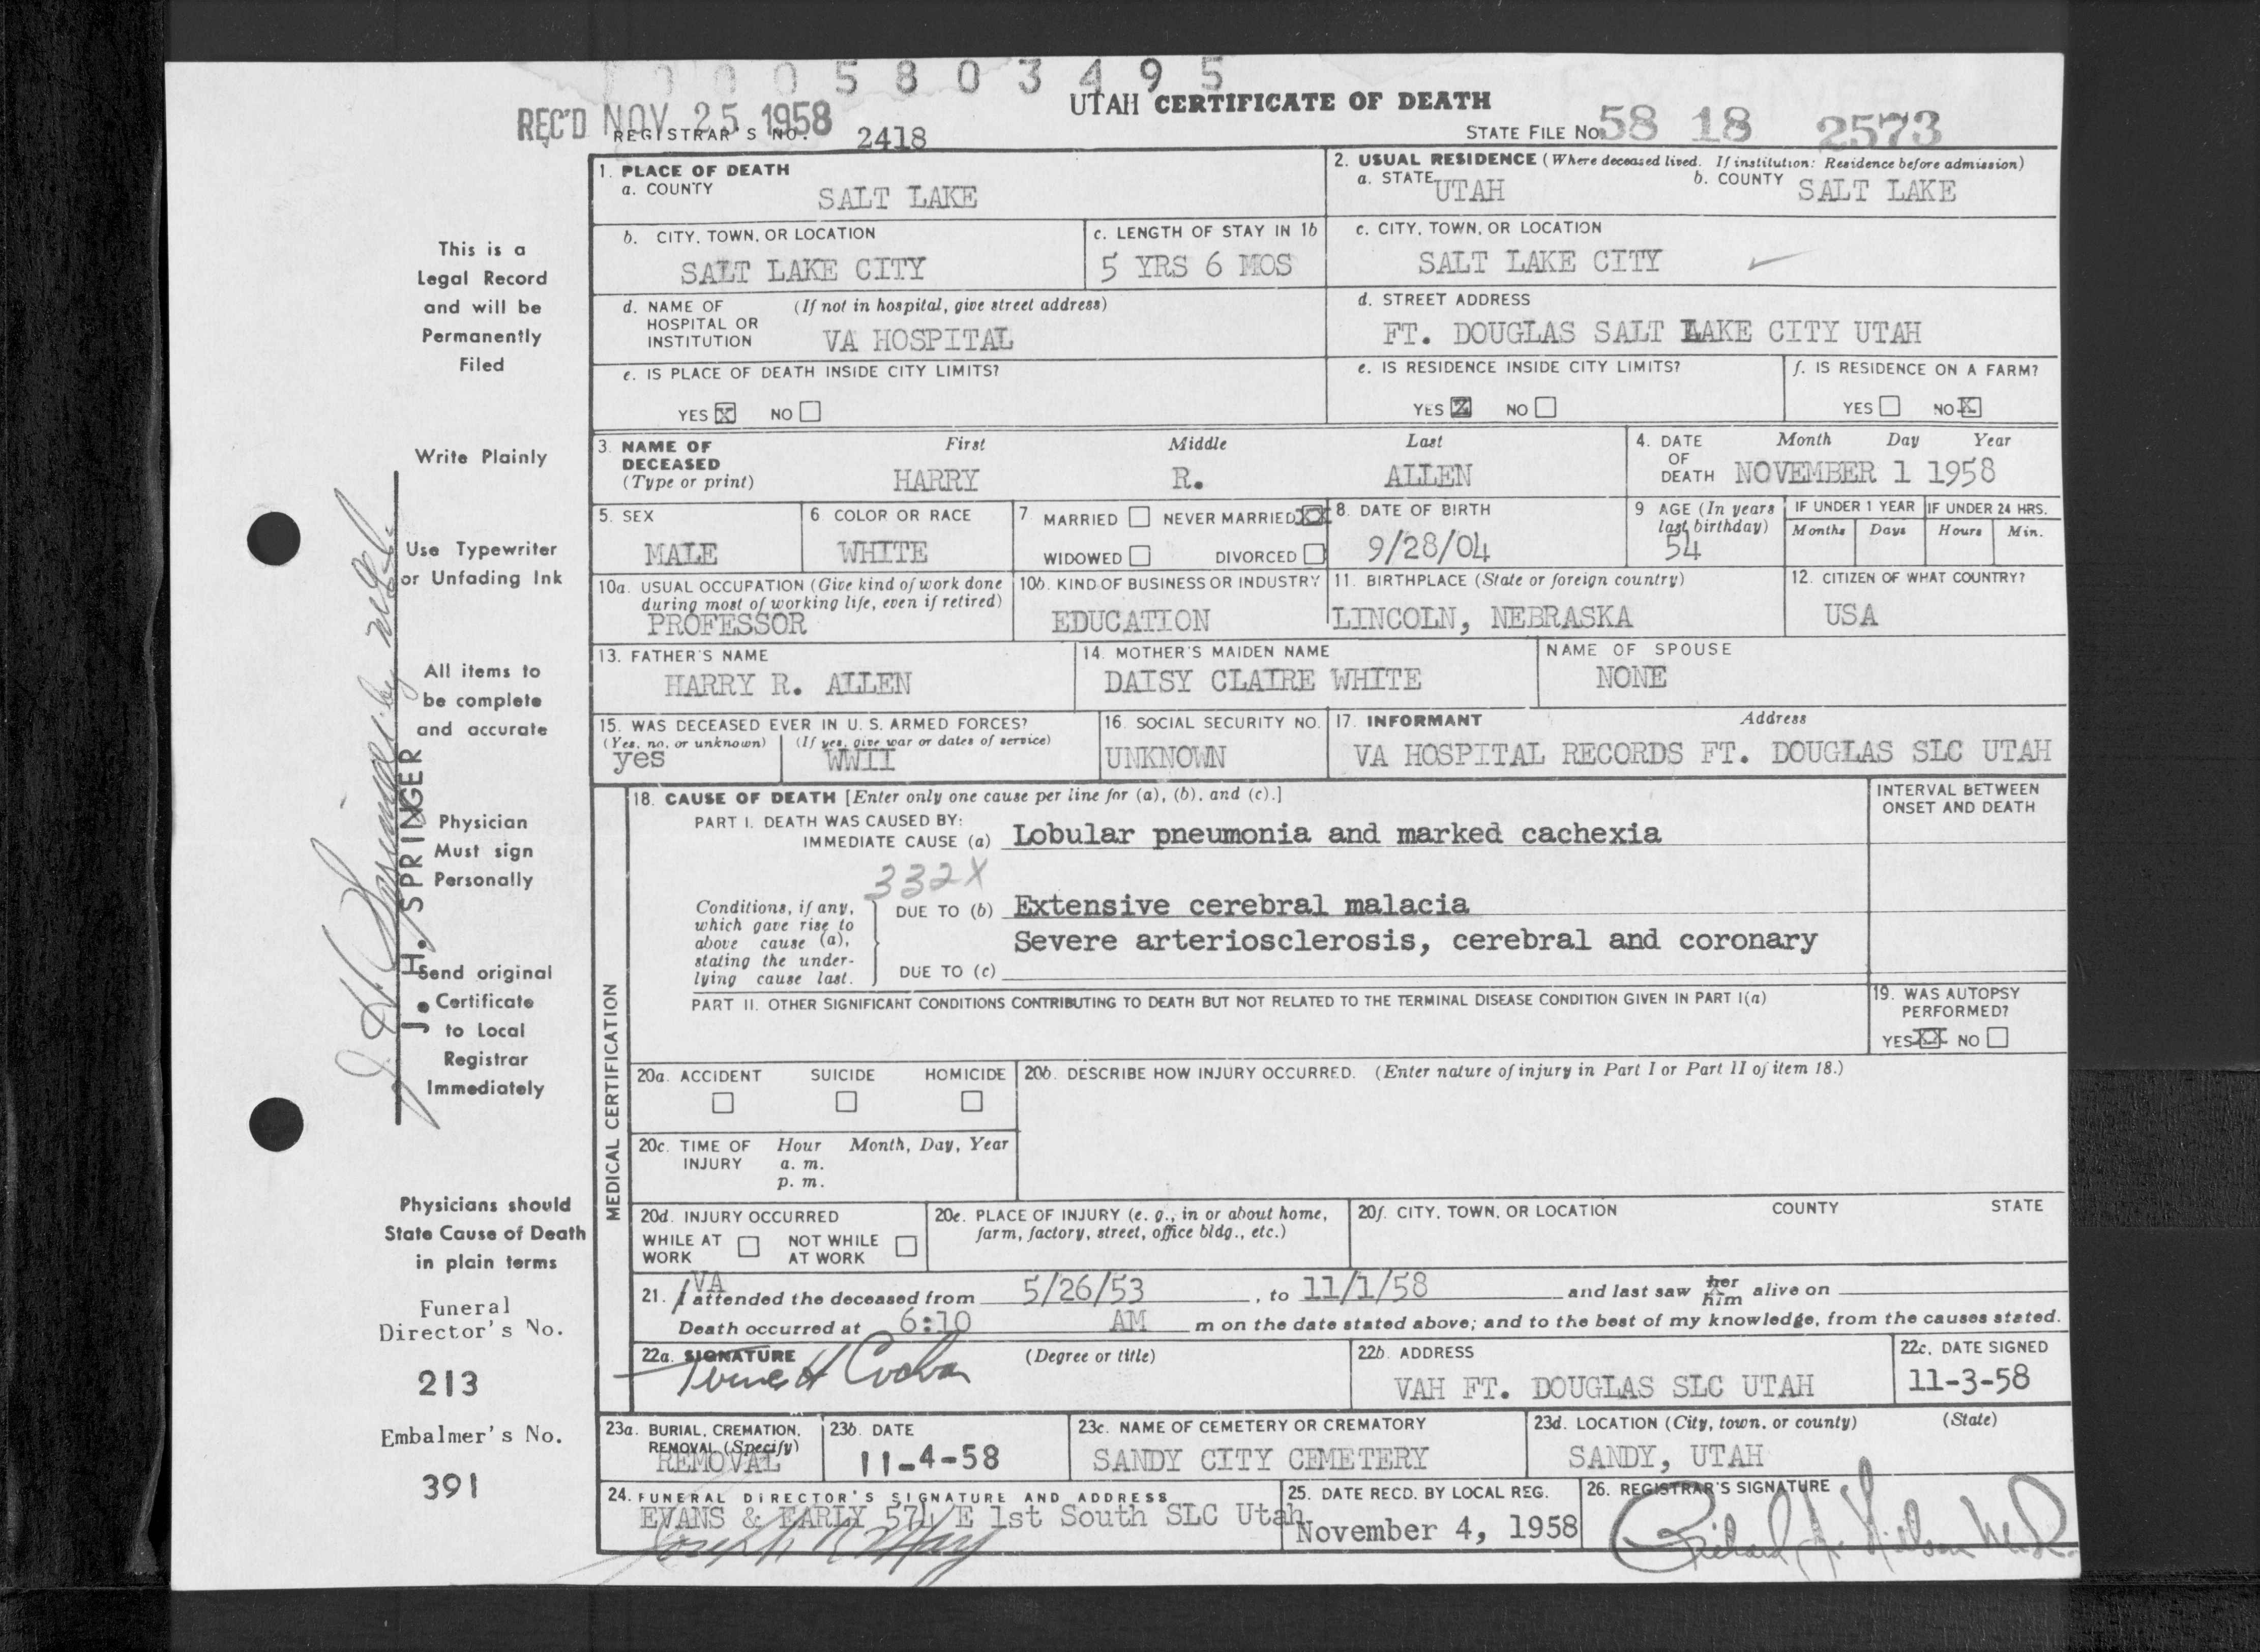 0 0 0 5 8 0 3 4 9 5
REC'D NOV 25 1958
UTAH CERTIFICATE OF DEATH
REGISTRAR'S NO. 2418
STATE FILE NO. 58 18 2573
1. PLACE OF DEATH
a. COUNTY SALT LAKE
2. USUAL RESIDENCE (Where deceased lived. If institution: Residence before admission)
a. STATE UTAH b. COUNTY SALT LAKE
b. CITY, TOWN, OR LOCATION
SALT LAKE CITY
c. LENGTH OF STAY IN 1b
5 YRS 6 MOS
c. CITY, TOWN, OR LOCATION
SALT LAKE CITY
d. NAME OF (If not in hospital, give street address)
HOSPITAL OR
INSTITUTION VA HOSPITAL
d. STREET ADDRESS
FT. DOUGLAS SALT LAKE CITY UTAH
e. IS PLACE OF DEATH INSIDE CITY LIMITS?
YES X NO
e. IS RESIDENCE INSIDE CITY LIMITS?
YES X NO
f. IS RESIDENCE ON A FARM?
YES NO X
3. NAME OF DECEASED (Type or print)
First Middle Last
HARRY R. ALLEN
4. DATE OF DEATH
Month Day Year
NOVEMBER 1 1958
5. SEX
MALE
6 COLOR OR RACE
WHITE
7 MARRIED NEVER MARRIED XX
WIDOWED DIVORCED
8. DATE OF BIRTH
9/28/04
9 AGE (In years last birthday)
54
IF UNDER 1 YEAR IF UNDER 24 HRS.
Months Days Hours Min.
10a. USUAL OCCUPATION (Give kind of work done
during most of working life, even if retired)
PROFESSOR
10b. KIND OF BUSINESS OR INDUSTRY
EDUCATION
11. BIRTHPLACE (State or foreign country)
LINCOLN, NEBRASKA
12. CITIZEN OF WHAT COUNTRY?
USA
13. FATHER'S NAME
HARRY R. ALLEN
14. MOTHER'S MAIDEN NAME
DAISY CLAIRE WHITE
NAME OF SPOUSE
NONE
15. WAS DECEASED EVER IN U. S. ARMED FORCES?
(Yes, no, or unknown) (If yes, give war or dates of service)
yes WWII
16. SOCIAL SECURITY NO.
UNKNOWN
17. INFORMANT Address
VA HOSPITAL RECORDS FT. DOUGLAS SLC UTAH
MEDICAL CERTIFICATION
18. CAUSE OF DEATH [Enter only one cause per line for (a), (b), and (c).]
PART I. DEATH WAS CAUSED BY:
IMMEDIATE CAUSE (a) Lobular pneumonia and marked cachexia
332X
Conditions, if any,
which gave rise to
above cause (a),
stating the under-
lying cause last.
DUE TO (b) Extensive cerebral malacia
Severe arteriosclerosis, cerebral and coronary
DUE TO (c)
INTERVAL BETWEEN
ONSET AND DEATH
PART II. OTHER SIGNIFICANT CONDITIONS CONTRIBUTING TO DEATH BUT NOT RELATED TO THE TERMINAL DISEASE CONDITION GIVEN IN PART I(a)
19. WAS AUTOPSY
PERFORMED?
YES XX NO
20a. ACCIDENT SUICIDE HOMICIDE
20b. DESCRIBE HOW INJURY OCCURRED. (Enter nature of injury in Part I or Part II of item 18.)
20c. TIME OF INJURY
Hour Month, Day, Year
a. m.
p. m.
20d. INJURY OCCURRED
WHILE AT WORK NOT WHILE AT WORK
20e. PLACE OF INJURY (e. g., in or about home,
farm, factory, street, office bldg., etc.)
20f. CITY, TOWN, OR LOCATION COUNTY STATE
VA
21. I attended the deceased from 5/26/53, to 11/1/58 and last saw her him alive on
Death occurred at 6:10 AM m on the date stated above; and to the best of my knowledge, from the causes stated.
22a. SIGNATURE (Degree or title)
22b. ADDRESS
VAH FT. DOUGLAS SLC UTAH
22c. DATE SIGNED
11-3-58
23a. BURIAL, CREMATION,
REMOVAL (Specify)
REMOVAL
23b. DATE
11-4-58
23c. NAME OF CEMETERY OR CREMATORY
SANDY CITY CEMETERY
23d. LOCATION (City, town, or county) (State)
SANDY, UTAH
24. FUNERAL DIRECTOR'S SIGNATURE AND ADDRESS
EVANS & EARLY 574 E 1st South SLC Utah
25. DATE RECD. BY LOCAL REG.
November 4, 1958
26. REGISTRAR'S SIGNATURE
This is a
Legal Record
and will be
Permanently
Filed
Write Plainly
Use Typewriter
or Unfading Ink
All items to
be complete
and accurate
Physician
Must sign
Personally
Send original
Certificate
to Local
Registrar
Immediately
Physicians should
State Cause of Death
in plain terms
Funeral
Director's No.
213
Embalmer's No.
391
J. H. SPRINGER